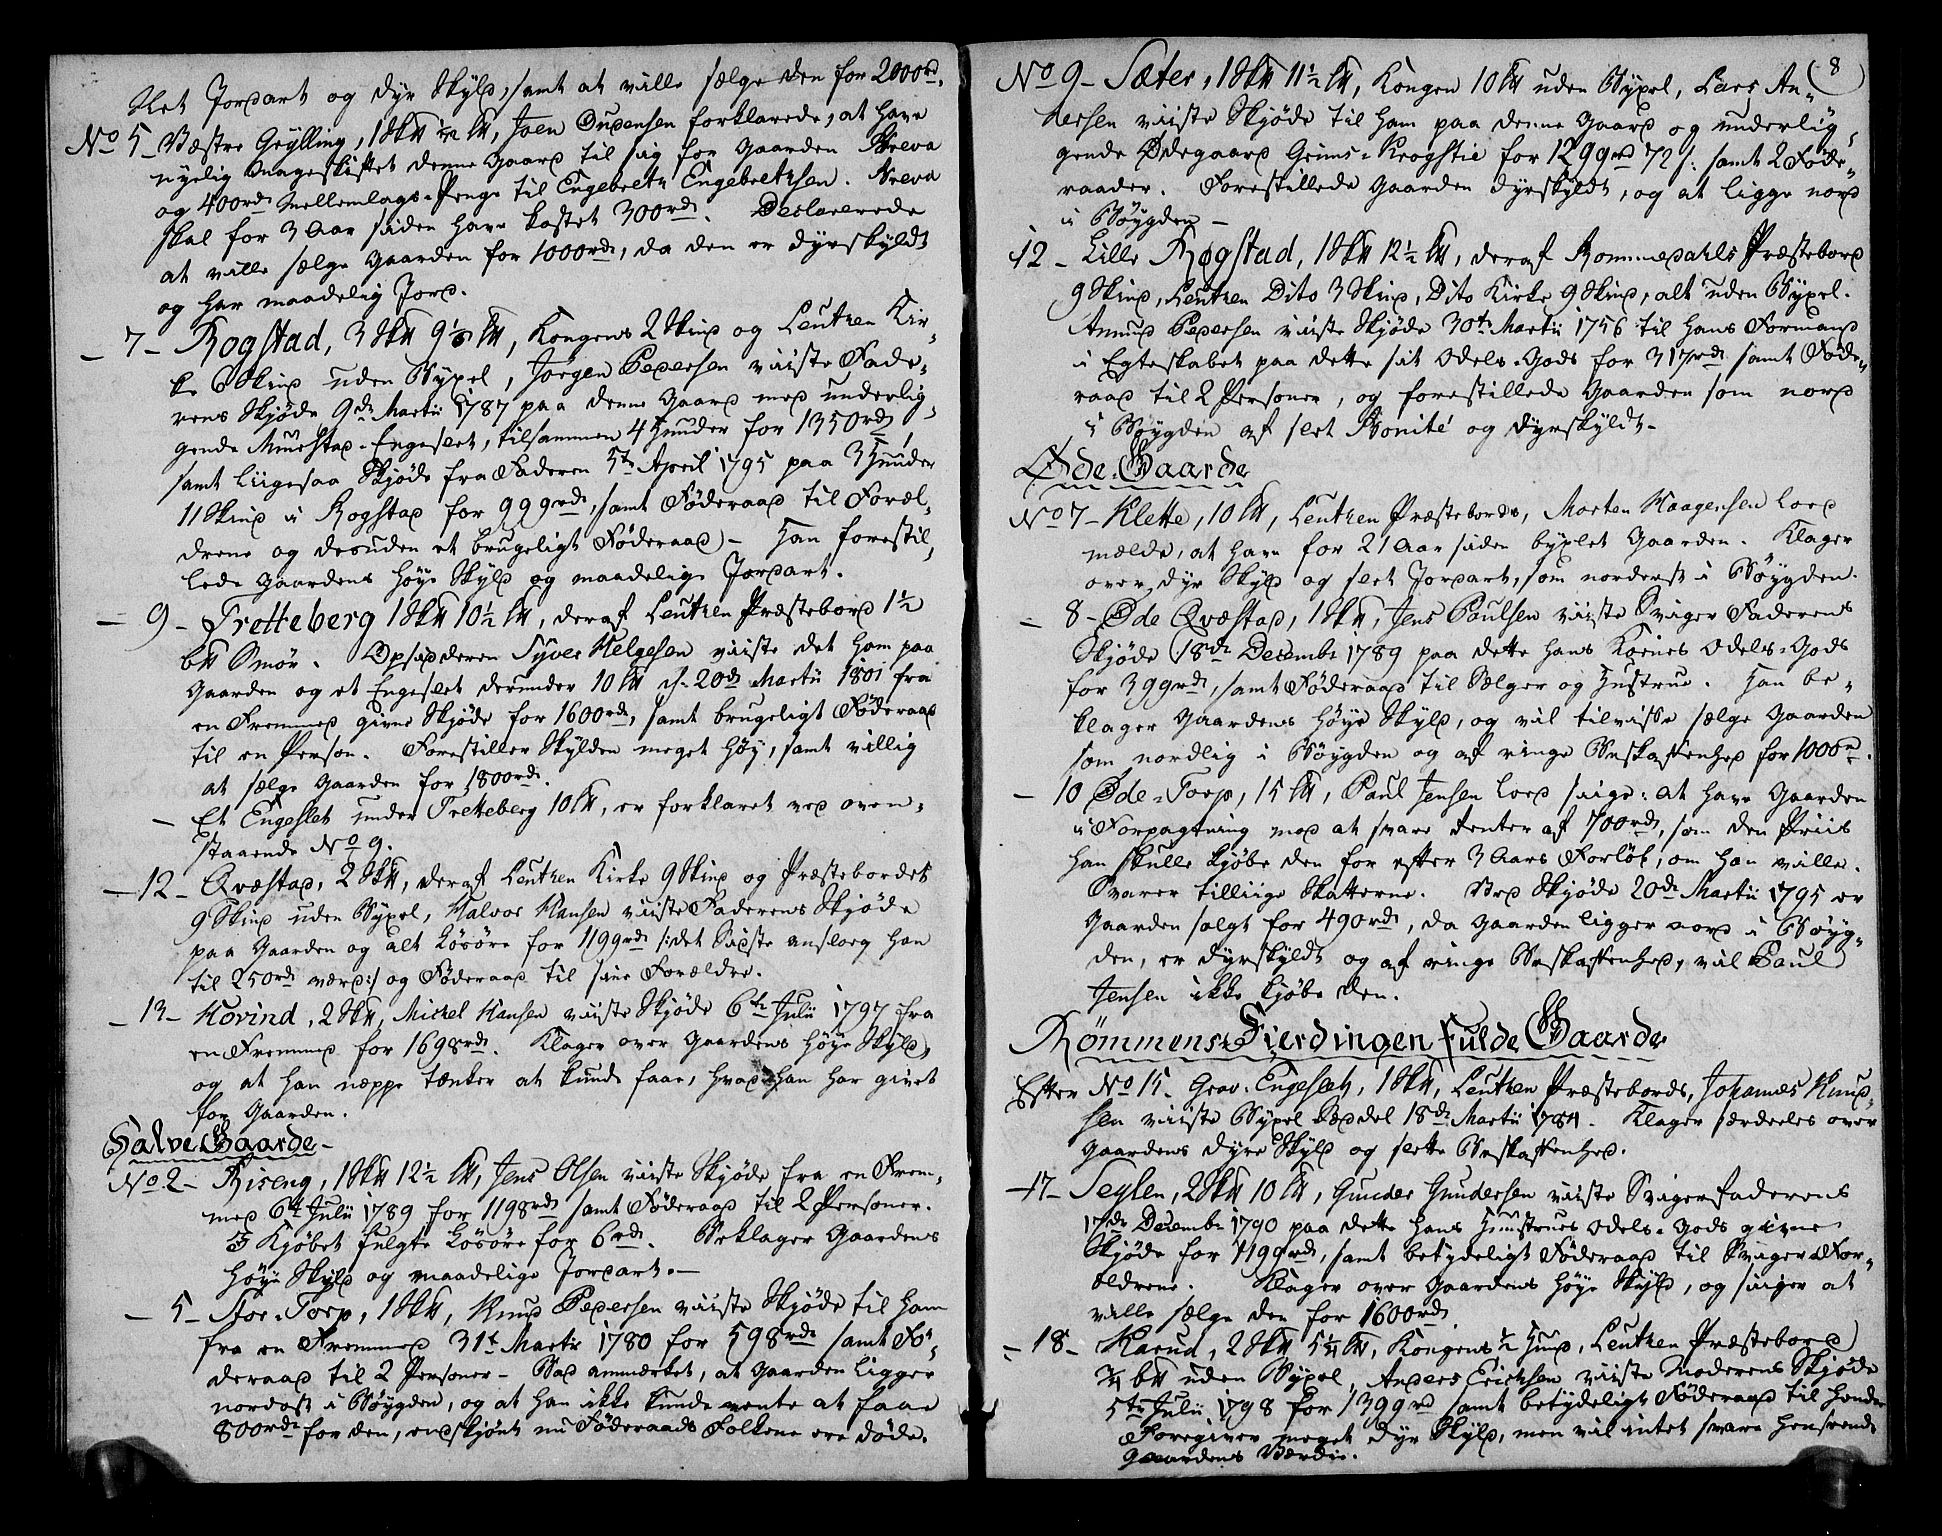 slet Jordart og dyr Skyld, samt at ville sælge den for 2000rd.
No 5 - Væstre Grylling, 1 Sk℔ ½ L℔, Joen Gudensen forklarede, at have
nyelig Mageskiftet denne Gaard til sig for Gaarden Skreva
og 400rd Mellemlags-Penge til Engebreth Engebrethsen. Skreva
skal for 3 Aar siden have kostet 300rd. Declarerede
at ville sælge Gaarden for 1000rd, da den er dyrskyldt
og har maadelig Jord.
- 7 - Rogstad, 3 Sk℔ 9⅓ L℔, Kongens 2 Skind og Leuthen Kir-
ke 6 Skind uden Bygsel, Jørgen Pedersen viiste Fade-
rens Skjøde 9de Martii 1787 paa denne Gaard med underlig-
gende Muustad-Engeslet, tilsammen 4 Huuder for 1350rd,
samt liigesaa Skjøde fra Faderen 5te April 1795 paa 3 Huuder
11 Skind i Rogstad for 999rd, samt Föderaad til Foræl-
drene og desuden et brugeligt Föderaad - Han forestil-
lede Gaardens høye Skyld og maadelige Jordart.
- 9 - Fretteberg 1 Sk℔ 10½ L℔, deraf Leuthen Præstebord 1½
b℔ Smör. Opsidderen Syver Helgesen viiste det ham paa
Gaarden og et Engeslet derunder 10 L℔ d. 20de Martii 1801 fra
en Fremmed givne Skjøde for 1600rd, samt brugeligt Föderaad
til en Person. Forestiller Skylden meget høy, samt villig
at sælge Gaarden for 1800rd.
- Et Engeslet under Fretteberg 10 L℔, er forklaret ved oven-
staaende No 9.
- 12 - Qvæstad, 2 Sk℔, deraf Leuthen Kirke 9 Skind og Præstebordet
9 Skind uden Bygsel, Halvor Hansen viiste Faderens Skjøde
paa Gaarden og alt Lösöre for 1199rd /: det Sidste anslaag han
til 250rd værd :/ og Föderaad til sine Forældre.
- 13 - Hovind, 2 Sk℔, Michel Hansen viiste Skjøde 6te Julii 1797 fra
en Fremmed for 1698rd. Klager over Gaardens høye Skyld,
og at han neppe tænker at kunde faae, hvad han har givet
for Gaarden.
Halve Gaarde -
No 2 - Riseng, 1 Sk℔ 12½ L℔, Jens Olsen viiste Skjøde fra en Frem-
med 6te Julii 1789 for 1198rd samt Föderaad til 2 Personer.
I Kjøbet fulgte Lösöre for 6rd. Beklager Gaardens
høye Skyld og maadelige Jordart. -
- 5 - Stor-Torp, 1 Sk℔, Knud Pedersen viiste Skjøde til ham
fra en Fremmed 31te Martii 1780 for 598rd samt Fö-
deraad til 2 Personer - Bad anmærket, at Gaarden ligger
nordost i Bøygden, og at han ikke kunde vente at faae
800rd for den, endskjönt nu Föderaads Folkene ere døde.
8
No 9 - Sæter, 1 Sk℔ 11½ L℔, Kongen 10 L℔ uden Bygsel, Lars An-
dersen viiste Skjøde til ham paa denne Gaard og underlig-
gende Ødegaard Griims-Krogstie for 1299rd 72 s. samt 2 Föde-
raader. Forestillede Gaarden dyrskyldt, og at ligge nord
i Bøygden -
12 - Lille Rogstad, 1 Sk℔ 12½ L℔, deraf Rommedahls Præstebord
9 Skind, Leuthen Dito 3 Skind, Dito Kirke 9 Skind, alt uden Bygsel.
Amund Pedersen viiste Skjøde 30te Martii 1756 til hans Formand
i Egteskabet paa dette sit Odels-Gods for 317rd samt Föde-
raad til 2 Personer, og forestillede Gaarden som nord
i Bøygden af slet Bonité og dyrskyldt -
Øde-Gaarde
No 7 - Klette, 10 L℔, Leuthen Præstebords, Morten Haagensen lod
mælde, at have for 21 Aar siden byxlet Gaarden. Klager
over dyr Skyld og slet Jordart, som nordest i Bøygden.
- 8 - Øde Qvæstad, 1 Sk℔, Jens Paulsen viiste Sviger Faderens
Skjøde 18de Decembr 1789 paa dette hans Koenes Odels-Gods
for 399rd, samt Föderaad til Sælger og Hustrue. Han be-
klager Gaardens høye Skyld, og vil tilvisse sælge Gaarden
som nordlig i Bøygden og af ringe Beskaffenhed for 1000rd.
- 10 Øde-Torp, 15 L℔, Paul Jensen lod sige: at have Gaarden
i Forpagtning med at svare Renter af 700rd, som den Priis
han skulle kjøbe den for efter 3 Aars Forløb, om han ville.
Svarer tilliige Skatterne. Ved Skjøde 20de Martii 1795 er
Gaarden solgt for 490rd, da Gaarden ligger nord i Bøyg-
den, er dyrskyldt og af ringe Beskaffenhed, vil Paul
Jensen ikke kjøbe den.
Römmens-Fierdingen fulde Gaarde
Efter No 15. Grav-Engeslet, 1 Sk℔, Leuthen Præstebords, Johannes Knud-
sen viiste Bygsel Seddel 18de Martii 1784. Klager særdeeles over
Gaardens dyre Skyld og slette Beskaffenhed.
- 17 - Seglen, 2 Sk℔ 10 L℔, Gunder Gundersen viiste Svigerfaderens
17de Decembr 1790 paa dette hans Hustrues Odels-Gods givne
Skjøde for 1199rd, samt betydeligt Föderaad til Sviger-For-
ældrene. Klager over Gaardens høye Skyld, og siiger at
ville sælge den for 1600rd.
- 18 - Harud, 2 Sk℔ 5¼ L℔, Kongens ½ Hud, Leuthen Præstebord
¾ b℔ uden Bygsel, Anders Erichsen viiste Moderens Skjøde
5te Julii 1798 for 1399rd samt betydeligt Föderaad til hende
Foregiver meget dyr Skyld, men vil intet svare henseende
Gaardens Værdie.